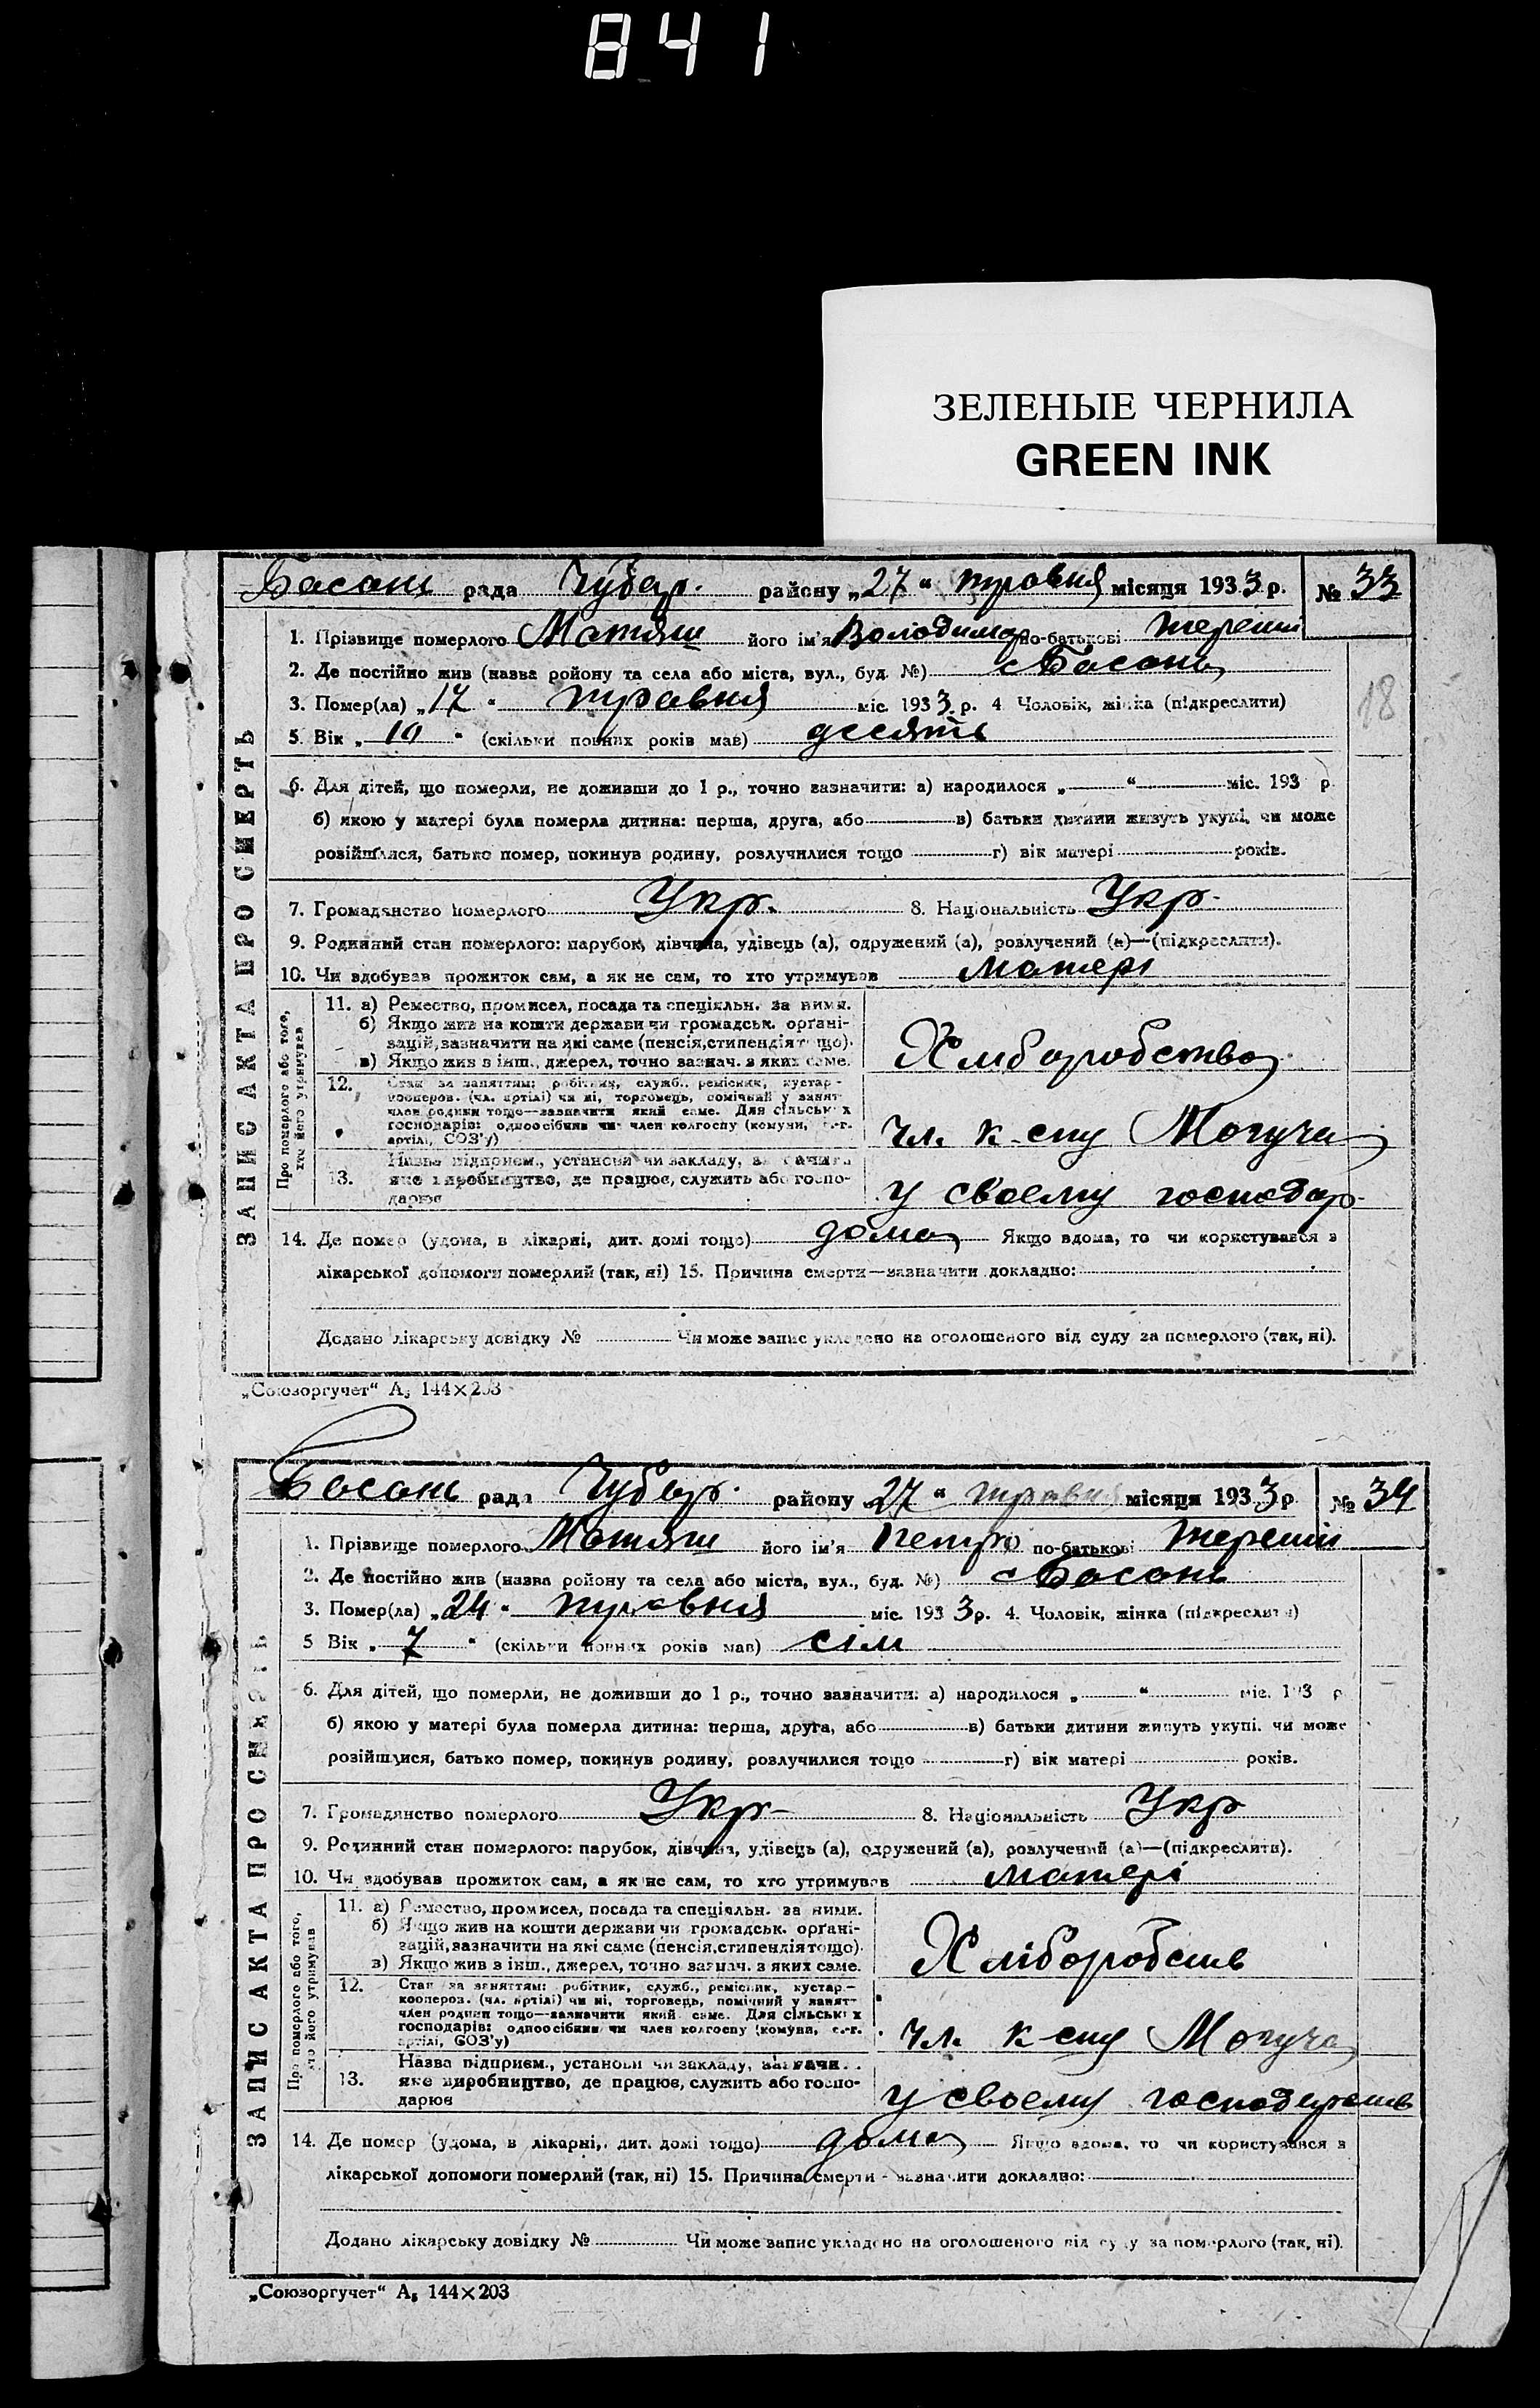 841
ЗЕЛЕНЫЕ ЧЕРНИЛА
GREEN INK
Басань рада Чубар. району „27“ травня місяця 1933 р. № 33
18
ЗАПИС АКТА ПРО СМЕРТЬ
1. Прізвище померлого Матяш його ім'я Володимир по-батькові Терешк
2. Де постійно жив (назва ройону та села або міста, вул., буд. №) с Басань
3. Помер(ла) „17“ травня міс. 1933 р. 4 Чоловік, жінка (підкреслити)
5. Вік „10“ (скільки повних років мав) десять
6. Для дітей, що померли, не доживши до 1 р., точно зазначити: а) народилося „ “ міс. 193 р.
б) якою у матері була померла дитина: перша, друга, або в) батьки дитини живуть укупі, чи може
розійшлися, батько помер, покинув родину, розлучилися тощо г) вік матері років.
7. Громадянство померлого Укр. 8. Національність Укр.
9. Родинний стан померлого: парубок, дівчина, удівець (а), одружений (а), розлучений (а)—(підкреслити).
10. Чи здобував прожиток сам, а як не сам, то хто утримував матері
Про померлого або того, хто його утримував
11. а) Ремество, промисел, посада та спеціяльн. за ними.
б) Якщо жив на кошти держави чи громадськ. орґані-
зацій, зазначити на які саме (пенсія, стипендія тощо).
в) Якщо жив з інш., джерел, точно зазнач. з яких саме.
Хліборобство
12. Стан за заняттям: робітник, служб., ремісник, кустар-
кооперов. (чл. артілі) чи ні, торговець, помічний у занят-
член родини тощо—зазначити який саме. Для сільських
господарів: одноосібник чи член колгоспу (комуни, с.-г.
артілі, СОЗ'у)
чл. к-спу Могуча
13. Назва підприєм., установи чи закладу, зазначи
яке виробництво, де працює, служить або госпо-
дарює
у своему господар.
14. Де помер (удома, в лікарні, дит. домі тощо) дома Якщо вдома, то чи користувався з
лікарської допомоги померлий (так, ні) 15. Причина смерти—зазначити докладно:
Додано лікарську довідку № Чи може запис укладено на оголошеного від суду за померлого (так, ні).
„Союзоргучет“ А5 144×203
Басань рада Чубар. району „27“ травня місяця 1933 р № 34
ЗАПИС АКТА ПРО СМЕРТЬ
1. Прізвище померлого Матяш його ім'я Петро по-батькові Терешк
2. Де постійно жив (назва ройону та села або міста, вул., буд. №) с Басань
3. Помер(ла) „24“ травня міс. 1933 р. 4. Чоловік, жінка (підкреслити)
5 Вік „7“ (скільки повних років мав) сім
6. Для дітей, що померли, не доживши до 1 р., точно зазначити: а) народилося „ “ міс. 193 р
б) якою у матері була померла дитина: перша, друга, або в) батьки дитини живуть укупі, чи може
розійшлися, батько помер, покинув родину, розлучилися тощо г) вік матері років.
7. Громадянство померлого Укр 8. Національність Укр
9. Родинний стан померлого: парубок, дівчина, удівець (а), одружений (а), розлучений (а)—(підкреслити).
10. Чи здобував прожиток сам, а як не сам, то хто утримував матері
Про померлого або того, хто його утримував
11. а) Ремество, промисел, посада та спеціяльн. за ними.
б) Якщо жив на кошти держави чи громадськ. орґані-
зацій, зазначити на які саме (пенсія, стипендія тощо).
в) Якщо жив з інш., джерел, точно зазнач. з яких саме.
Хліборобств
12. Стан за заняттям: робітник, служб., ремісник, кустар-
кооперов. (чл. артілі) чи ні, торговець, помічний у занят-
член родини тощо—зазначити який саме. Для сільських
господарів: одноосібник чи член колгоспу (комуни, с.-г.
артілі, СОЗ'у)
чл. к-спу Могуча
13. Назва підприєм., установи чи закладу, зазначи
яке виробництво, де працює, служить або госпо-
дарює
у своему господарств
14. Де помер (удома, в лікарні, дит. домі тощо) дома Якщо вдома, то чи користувався з
лікарської допомоги померлий (так, ні) 15. Причина смерти - зазначити докладно:
Додано лікарську довідку № Чи може запис укладено на оголошеного від суду за померлого (так, ні).
„Союзоргучет“ А5 144×203